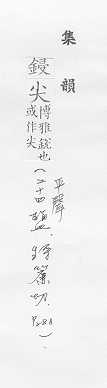 集韻
鋟尖博雅銳也
或作尖
平聲
(二十四鹽.將廉切.)